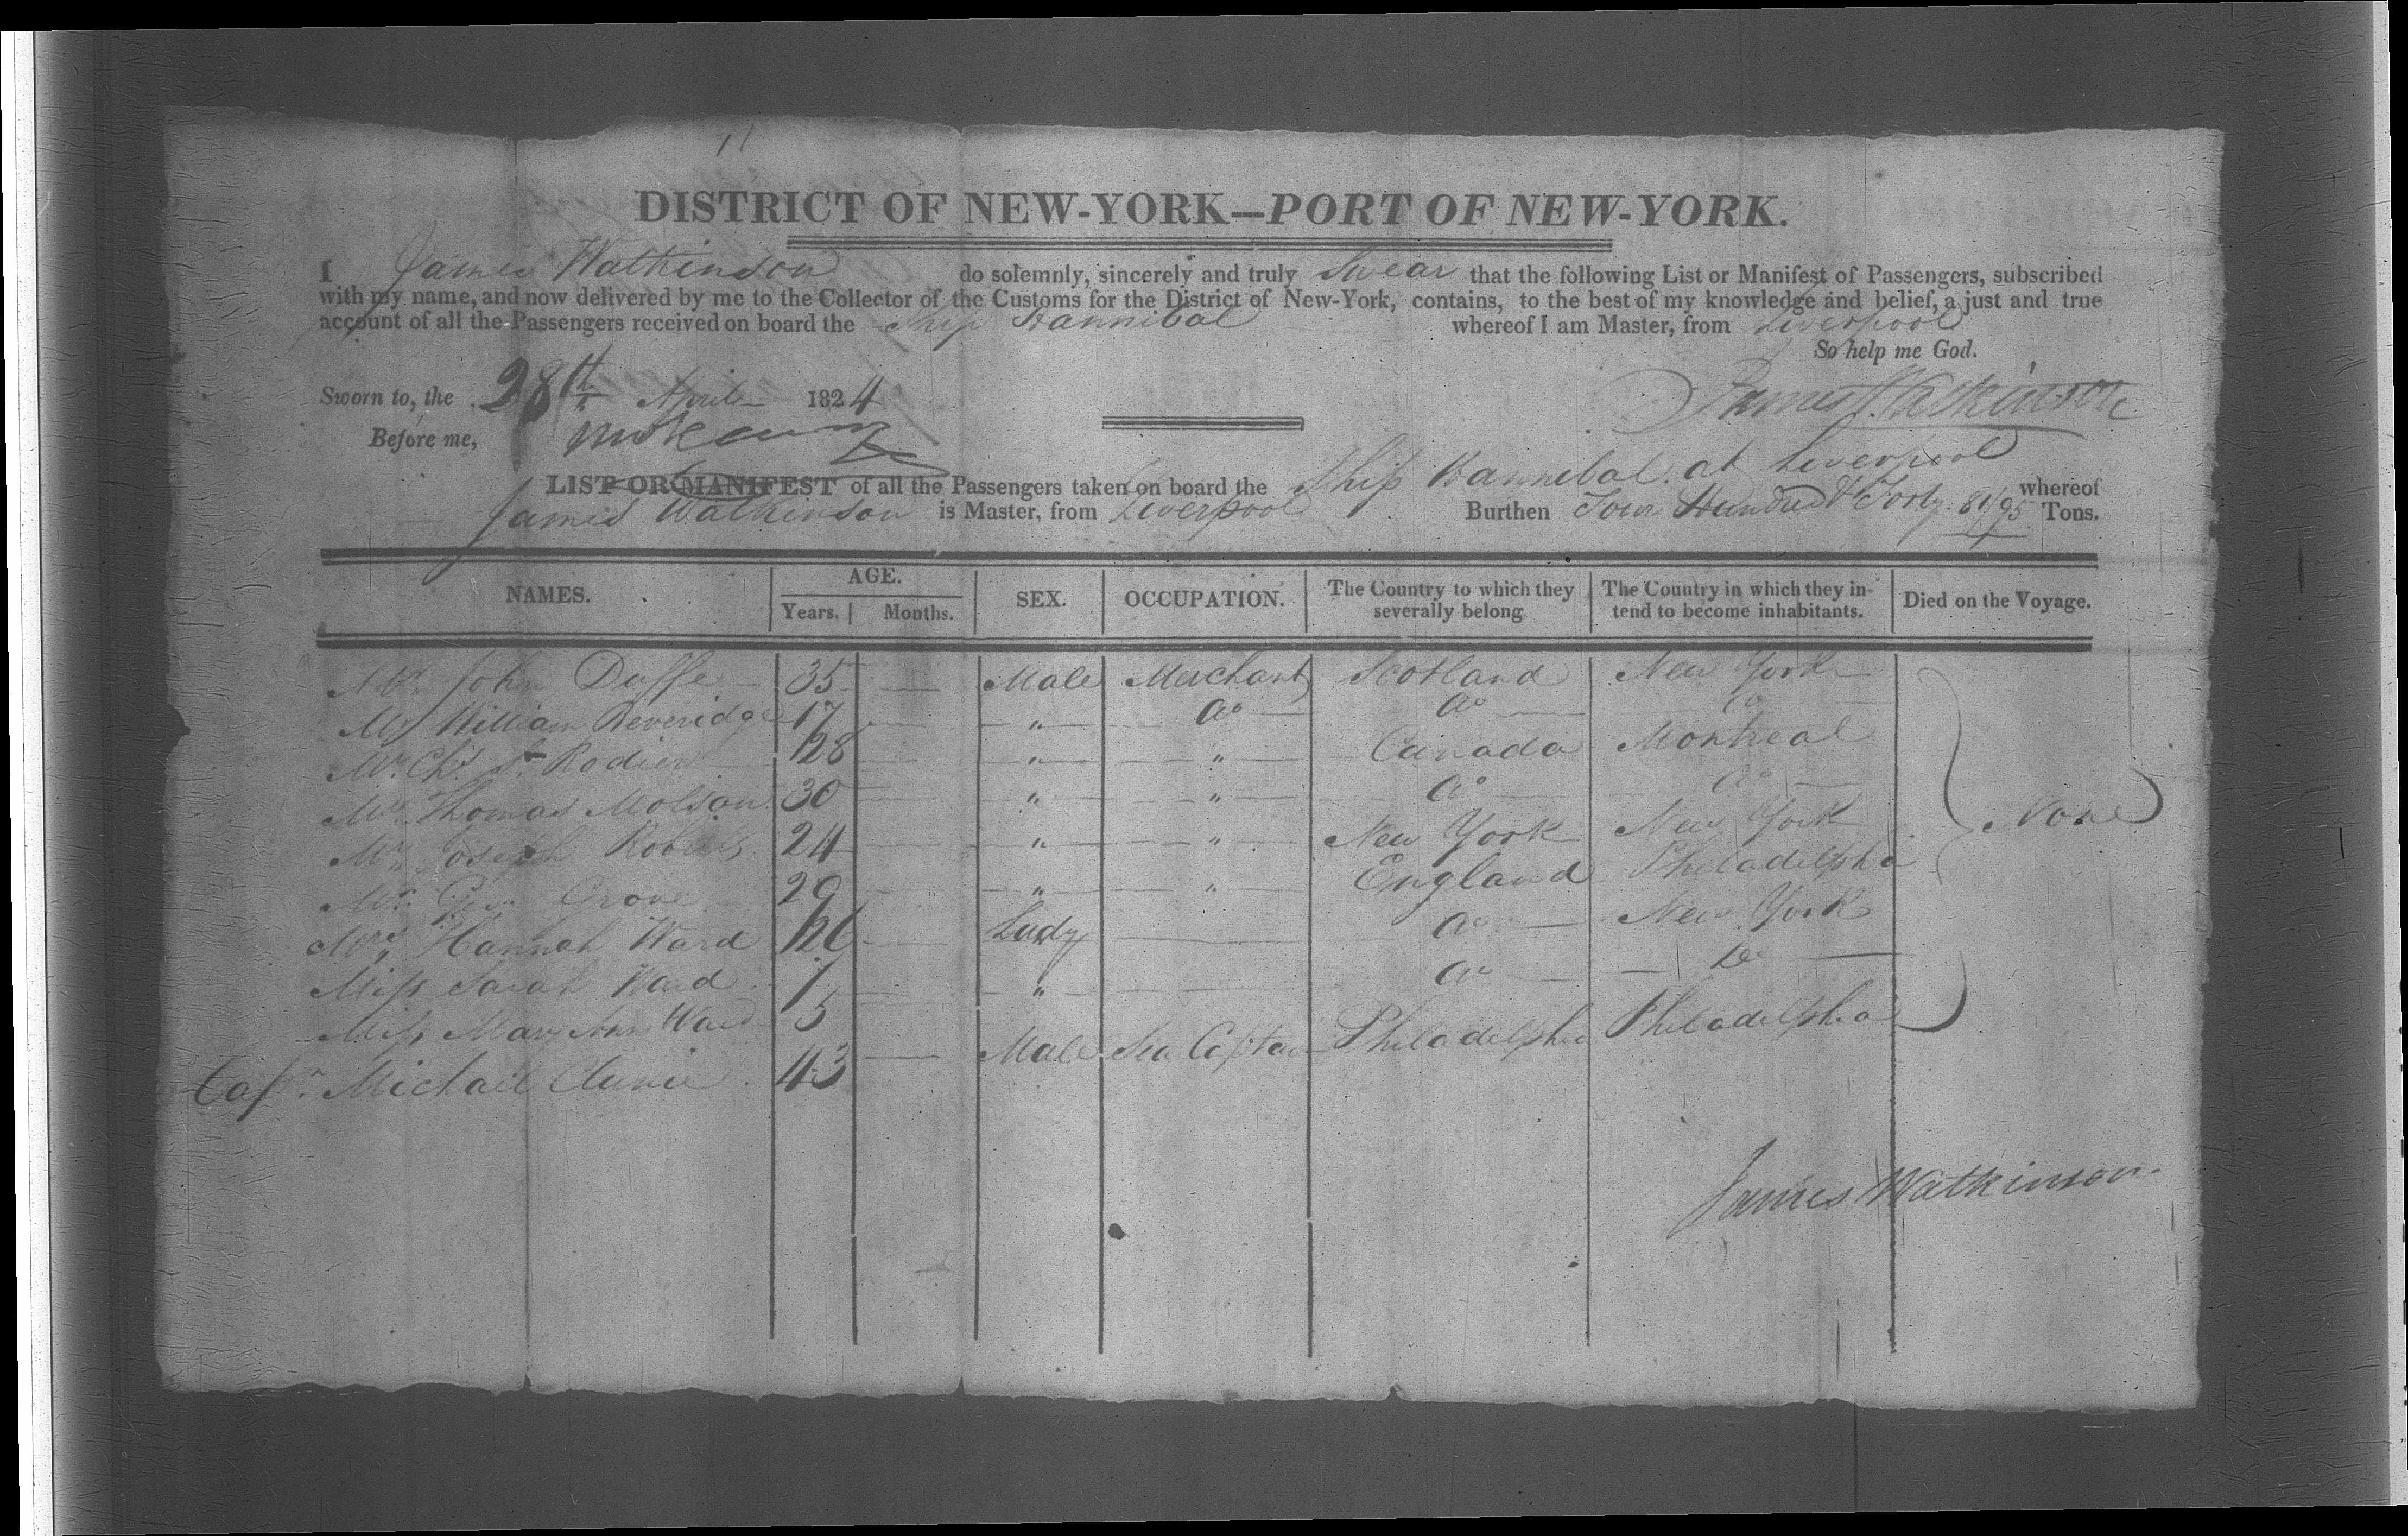 DISTRICT OF NEW-YORK—PORT OF NEW-YORK.
I James Watkinson do solemnly, sincerely and truly Swear that the following List or Manifest of Passengers, subscribed
with my name, and now delivered by me to the Collector of the Customs for the District of New-York, contains, to the best of my knowledge and belief, a just and true
account of all the Passengers received on board the Ship Hannibal whereof I am Master, from Liverpool
So help me God.
Sworn to, the 28th April 1824 James Watkinson
Before me,
LIST OR MANIFEST of all the Passengers taken on board the Ship Hannibal at Liverpool whereof
James Watkinson is Master, from Liverpool Burthen Four Hundred & Forty 81/95 Tons.
NAMES. AGE. SEX. OCCUPATION. The Country to which they severally belong The Country in which they intend to become inhabitants. Died on the Voyage.
Years. Months.
Mr. John Duffe 35 — Male Merchant Scotland New York
Mr William Beveridge 17 — " Do Do Do
Mr. Chs. S. Rodier 28 — " " Canada Montreal
Mr. Thomas Molson 30 — " " Do Do
Mr. Joseph Roberts 24 — " " New York New York None
Mr. Grove 29 — " " England Philadelphia
Mrs Hannah Ward — Lady — Do New York
Miss Sarah Ward 7 — " — Do Do
Miss Mary Ann Ward 5
Capt. Michael 43 — Male Sea Captain Philadelphia Philadelphia
James Watkinson